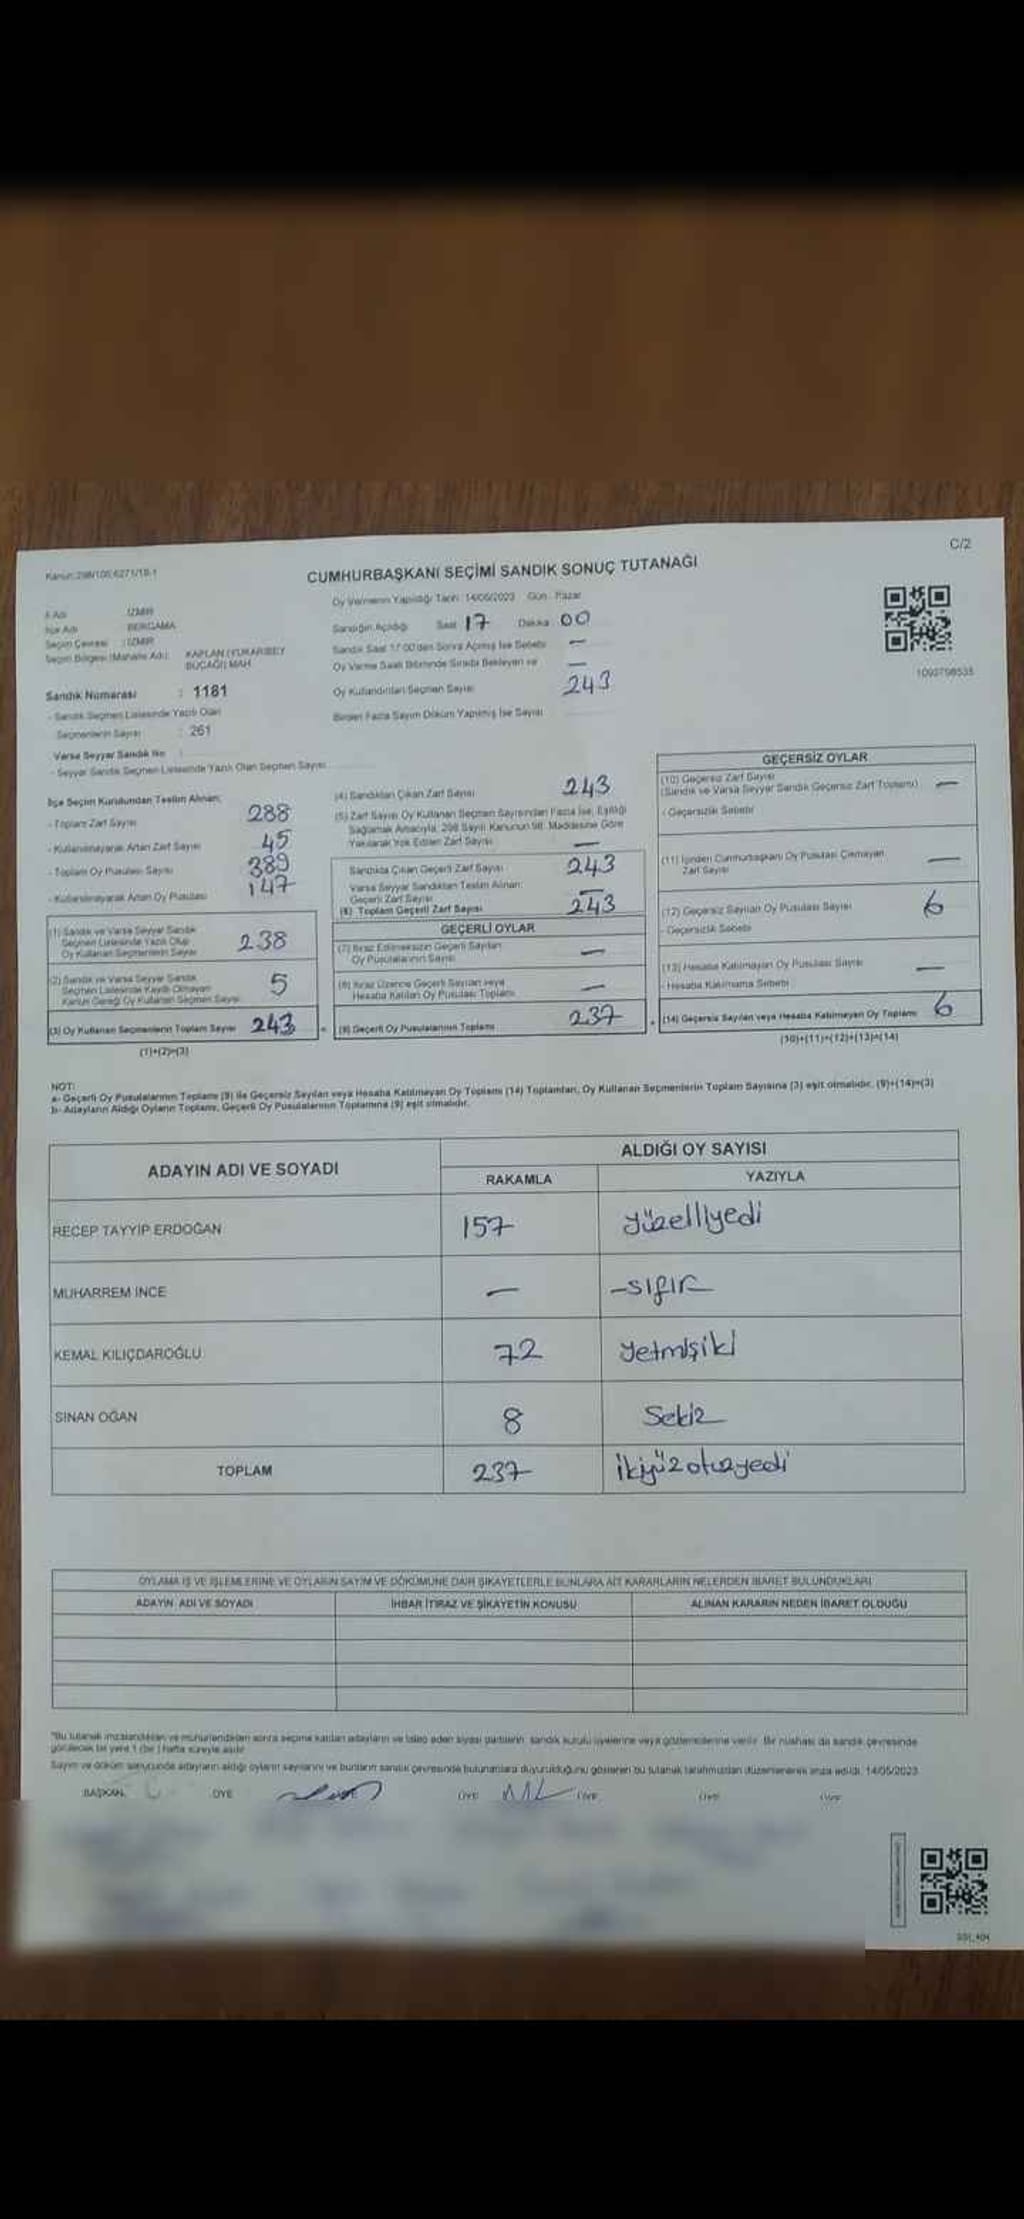 C/2
Kanun:298/105;6271/19-1
CUMHURBAŞKANI SEÇİMİ SANDIK SONUÇ TUTANAĞI
İl Adı İZMİR
İlçe Adı BERGAMA
Seçim Çevresi : İZMİR
Seçim Bölgesi (Mahalle Adı) KAPLAN (YUKARIBEY
BUCAĞI) MAH
Sandık Numarası : 1181
- Sandık Seçmen Listesinde Yazılı Olan
Seçmenlerin Sayısı : 261
Varsa Seyyar Sandık No :
- Seyyar Sandık Seçmen Listesinde Yazılı Olan Seçmen Sayısı
Oy Vermenin Yapıldığı Tarih :14/05/2023 Gün : Pazar
Sandığın Açıldığı Saat 17 Dakika 00
Sandık Saat 17:00'den Sonra Açılmış İse Sebebi —
Oy Verme Saati Bitiminde Sırada Bekleyen ve —
Oy Kullandırılan Seçmen Sayısı 243
Birden Fazla Sayım Döküm Yapılmış İse Sayısı
1093798535
İlçe Seçim Kurulundan Teslim Alınan:
- Toplam Zarf Sayısı 288
- Kullanılmayarak Artan Zarf Sayısı 45
- Toplam Oy Pusulası Sayısı 389
- Kullanılmayarak Artan Oy Pusulası 147
(1) Sandık ve Varsa Seyyar Sandık
Seçmen Listesinde Yazılı Olup
Oy Kullanan Seçmenlerin Sayısı 238
(2) Sandık ve Varsa Seyyar Sandık
Seçmen Listesinde Kayıtlı Olmayan
Kanun Gereği Oy Kullanan Seçmen Sayısı 5
(3) Oy Kullanan Seçmenlerin Toplam Sayısı 243
(1)+(2)=(3)
(4) Sandıktan Çıkan Zarf Sayısı 243
(5) Zarf Sayısı Oy Kullanan Seçmen Sayısından Fazla İse, Eşitliği
Sağlamak Amacıyla, 298 Sayılı Kanunun 98. Maddesine Göre
Yakılarak Yok Edilen Zarf Sayısı —
Sandıkta Çıkan Geçerli Zarf Sayısı 243
Varsa Seyyar Sandıktan Teslim Alınan:
Geçerli Zarf Sayısı —
(6) Toplam Geçerli Zarf Sayısı 243
GEÇERLİ OYLAR
(7) İtiraz Edilmeksizin Geçerli Sayılan
Oy Pusulalarının Sayısı —
(8) İtiraz Üzerine Geçerli Sayılan veya
Hesaba Katılan Oy Pusulası Toplamı —
(9) Geçerli Oy Pusulalarının Toplamı 237
GEÇERSİZ OYLAR
(10) Geçersiz Zarf Sayısı
(Sandık ve Varsa Seyyar Sandık Geçersiz Zarf Toplamı) —
- Geçersizlik Sebebi
(11) İçinden Cumhurbaşkanı Oy Pusulası Çıkmayan
Zarf Sayısı —
(12) Geçersiz Sayılan Oy Pusulası Sayısı 6
- Geçersizlik Sebebi
(13) Hesaba Katılmayan Oy Pusulası Sayısı —
- Hesaba Katılmama Sebebi
(14) Geçersiz Sayılan veya Hesaba Katılmayan Oy Toplamı 6
(10)+(11)+(12)+(13)=(14)
NOT:
a- Geçerli Oy Pusulalarının Toplamı (9) ile Geçersiz Sayılan veya Hesaba Katılmayan Oy Toplamı (14) Toplamları, Oy Kullanan Seçmenlerin Toplam Sayısına (3) eşit olmalıdır. (9)+(14)=(3)
b- Adayların Aldığı Oyların Toplamı, Geçerli Oy Pusulalarının Toplamına (9) eşit olmalıdır.
ADAYIN ADI VE SOYADI ALDIĞI OY SAYISI
RAKAMLA YAZIYLA
RECEP TAYYİP ERDOĞAN 157 yüzelliyedi
MUHARREM İNCE — -sıfır
KEMAL KILIÇDAROĞLU 72 yetmişiki
SİNAN OĞAN 8 Sekiz
TOPLAM 237 ikiyüzotuzyedi
OYLAMA İŞ VE İŞLEMLERİNE VE OYLARIN SAYIM VE DÖKÜMÜNE DAİR ŞİKAYETLERLE BUNLARA AİT KARARLARIN NELERDEN İBARET BULUNDUKLARI
ADAYIN ADI VE SOYADI İHBAR İTİRAZ VE ŞİKAYETİN KONUSU ALINAN KARARIN NEDEN İBARET OLDUĞU
"Bu tutanak imzalandıktan ve mühürlendikten sonra seçime katılan adayların ve talep eden siyasi partilerin sandık kurulu üyelerine veya gözlemcilerine verilir. Bir nüshası da sandık çevresinde
görülecek bir yere 1 (bir ) hafta süreyle asılır.
Sayım ve döküm sonucunda adayların aldığı oyların sayılarını ve bunların sandık çevresinde bulunanlara duyurulduğunu gösteren bu tutanak tarafımızdan düzenlenerek imza edildi. 14/05/2023
BAŞKAN ÜYE ÜYE ÜYE ÜYE ÜYE